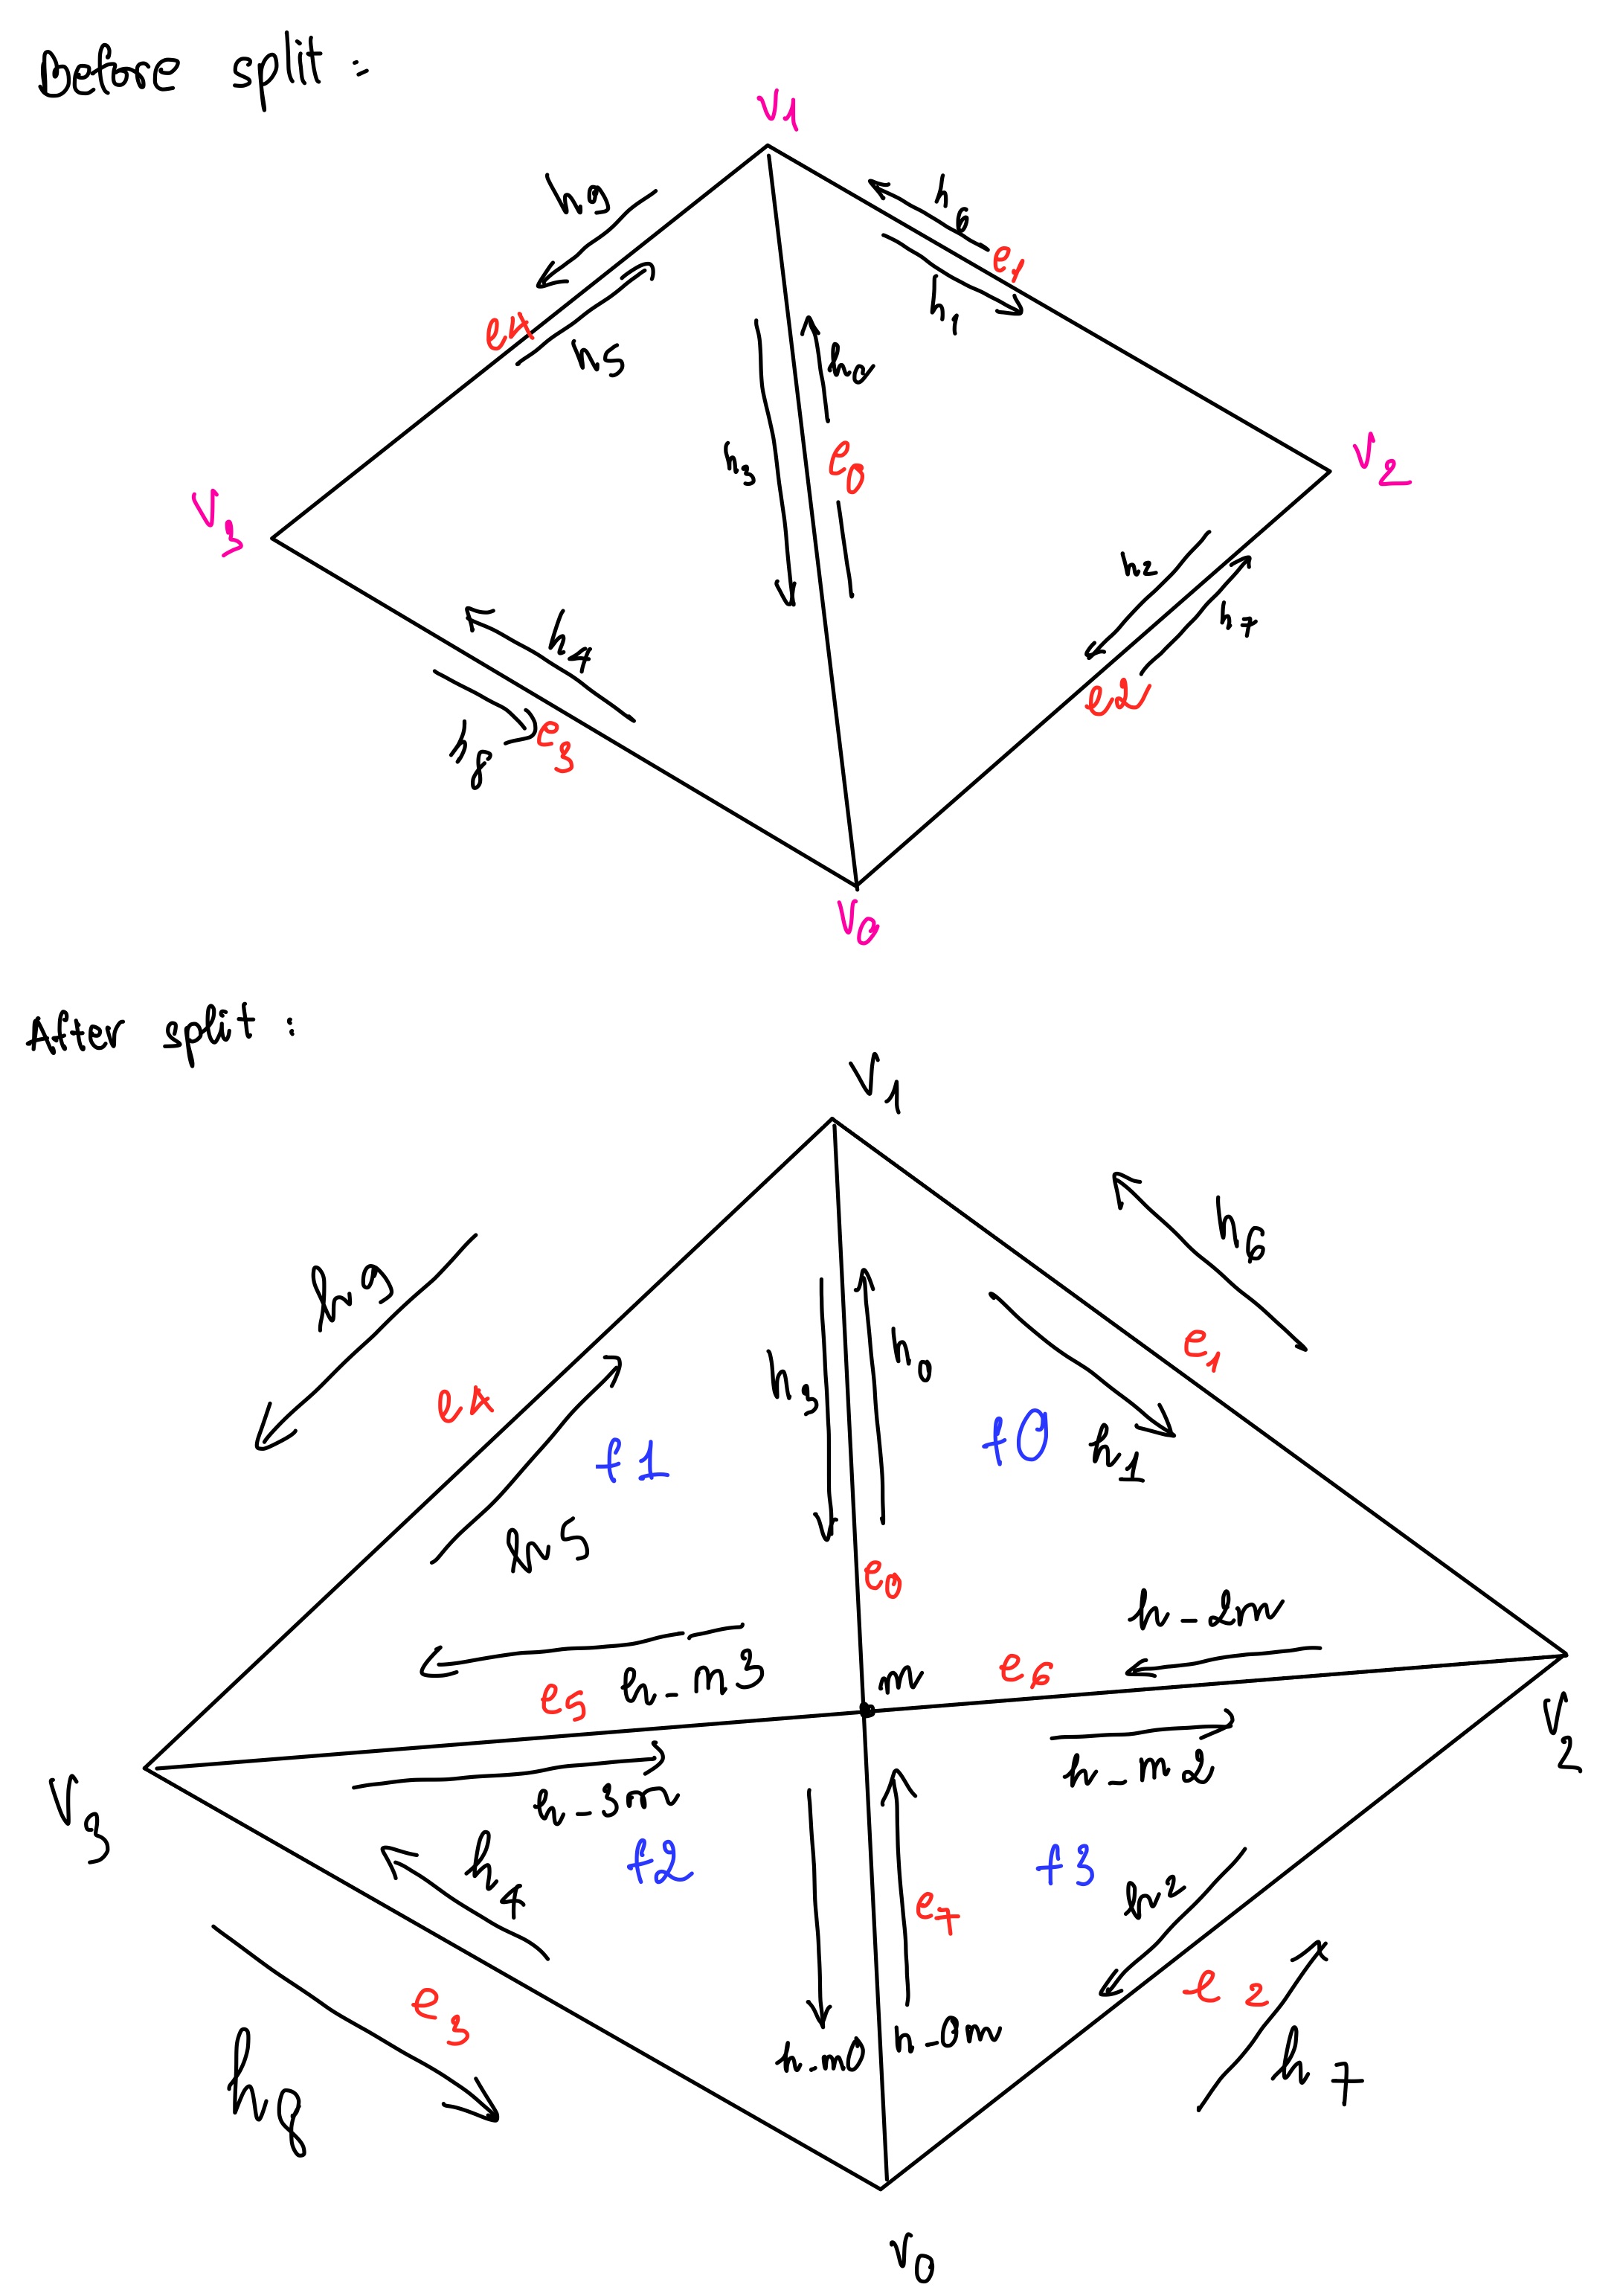 Before split :
V1
h9
h6
e1
h1
e4
h5
h0
h3
e0
V2
V3
h2
h7
h4
e2
h8
e3
V0
After split :
V1
h6
h9
e1
h0
h3
e4
f0
h1
f1
h5
e0
h_2m
h_m3
m
e6
e5
V2
h_m2
h_3m
V3
h4
f2
f3
h2
e7
e2
e3
h_m0
h_0m
h7
h8
V0